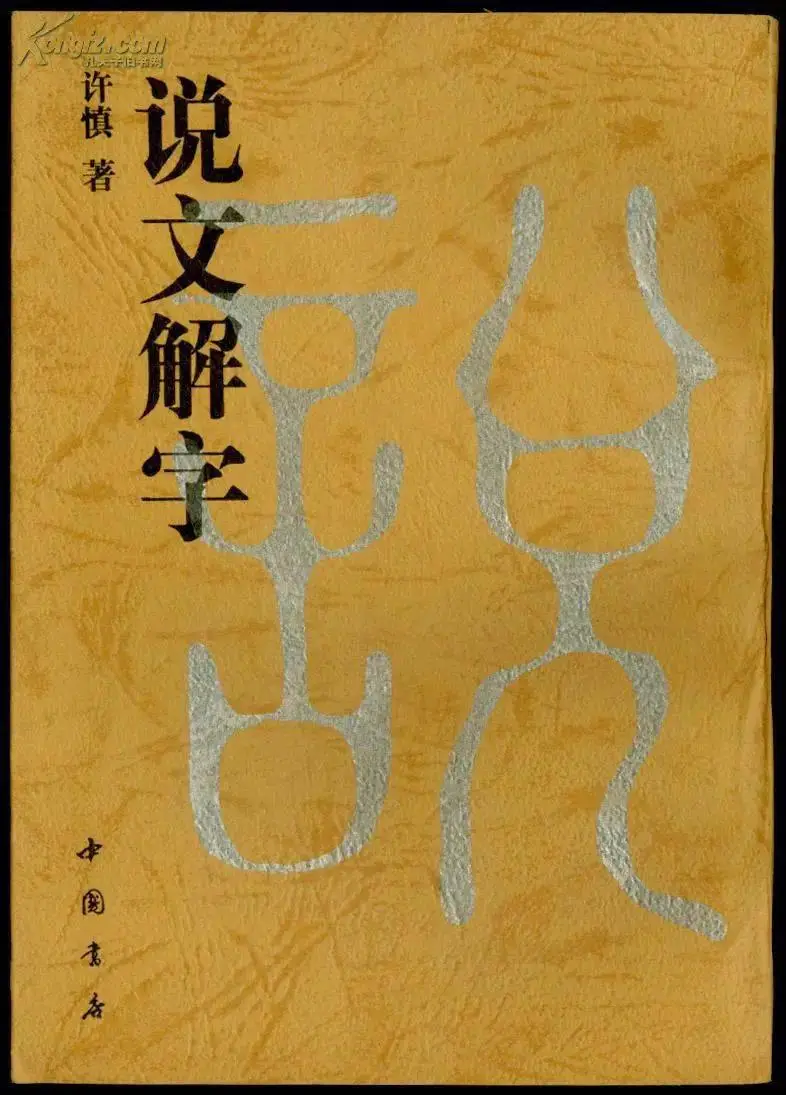 Kongfz.com
孔夫子旧书网
许慎 著
说文解字
説
中国书店